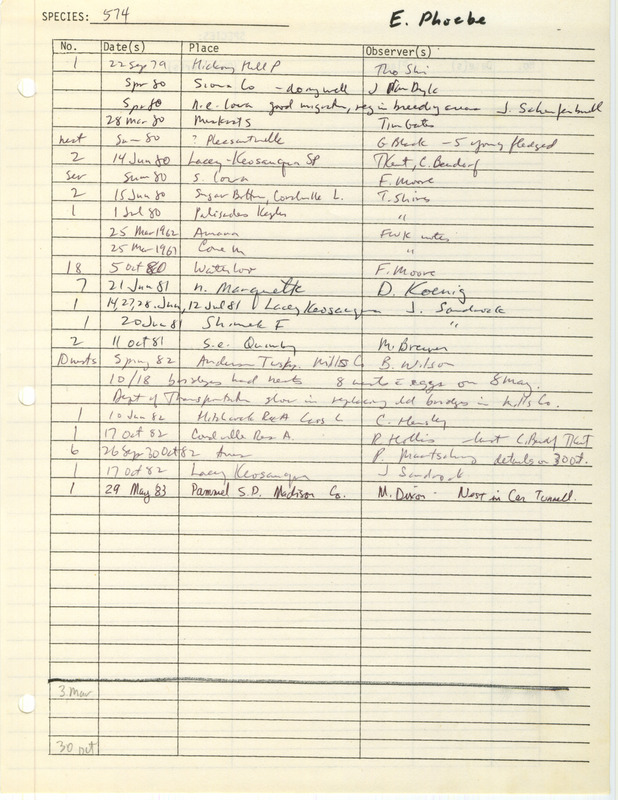 SPECIES: 574 E. Phoebe
No. Date(s) Place Observer(s)
1 22 Sep 79 Hickory Hill P
Spr 80 Sioux Co - doing well J Van Dyk
Spr 80 n.e. Iowa good migration, reg in breeding areas J. Schaufenbuel
28 Mar 80 Tim
nest Sum 80 ? Pleasantville G Black - 5 young fledged
2 14 Jun 80 Lacey-Keosauqua SP TKent, C. Bendorf
Sev Sum 80 S. Iowa F. Moore
2 15 Jun 80 Sugar Bottom, Coralville L. T. Shires
1 1 Jul 80 Palisades Kepler "
25 Mar 1962 Amana FWK notes
25 Mar 1967 Cone M "
18 5 Oct 80 Waterloo F. Moore
7 21 Jun 81 n. Marquette D. Koenig
1 14,27,28 Jun, 12 Jul 81 Lacey Keosauqua J. Sandrock
1 20 Jun 81 Shimek F "
2 11 Oct 81 S.e. Quimby M. Brewer
10 nests Spring 82 Anderson Twsp. Mills Co B. Wilson
10/18 bridges had nests 8 with eggs on 8 May.
Dept of Transportation slow in replacing old bridges in Mills Co.
1 10 Jun 82 Hitchcock Rec A Cass C
1 17 Oct 82 Coralville Res A. P. Hollis C. Bend, TKent
6 26 Sep 30 Oct 82 Ames P. Martsching details on 30 Oct.
1 17 Oct 82 Lacey Keosauqua J Sandrock
1 29 May 83 Pammel S.P. Madison Co. M. Dixon - Nest in Car Tunnell.
3 Mar
30 Oct